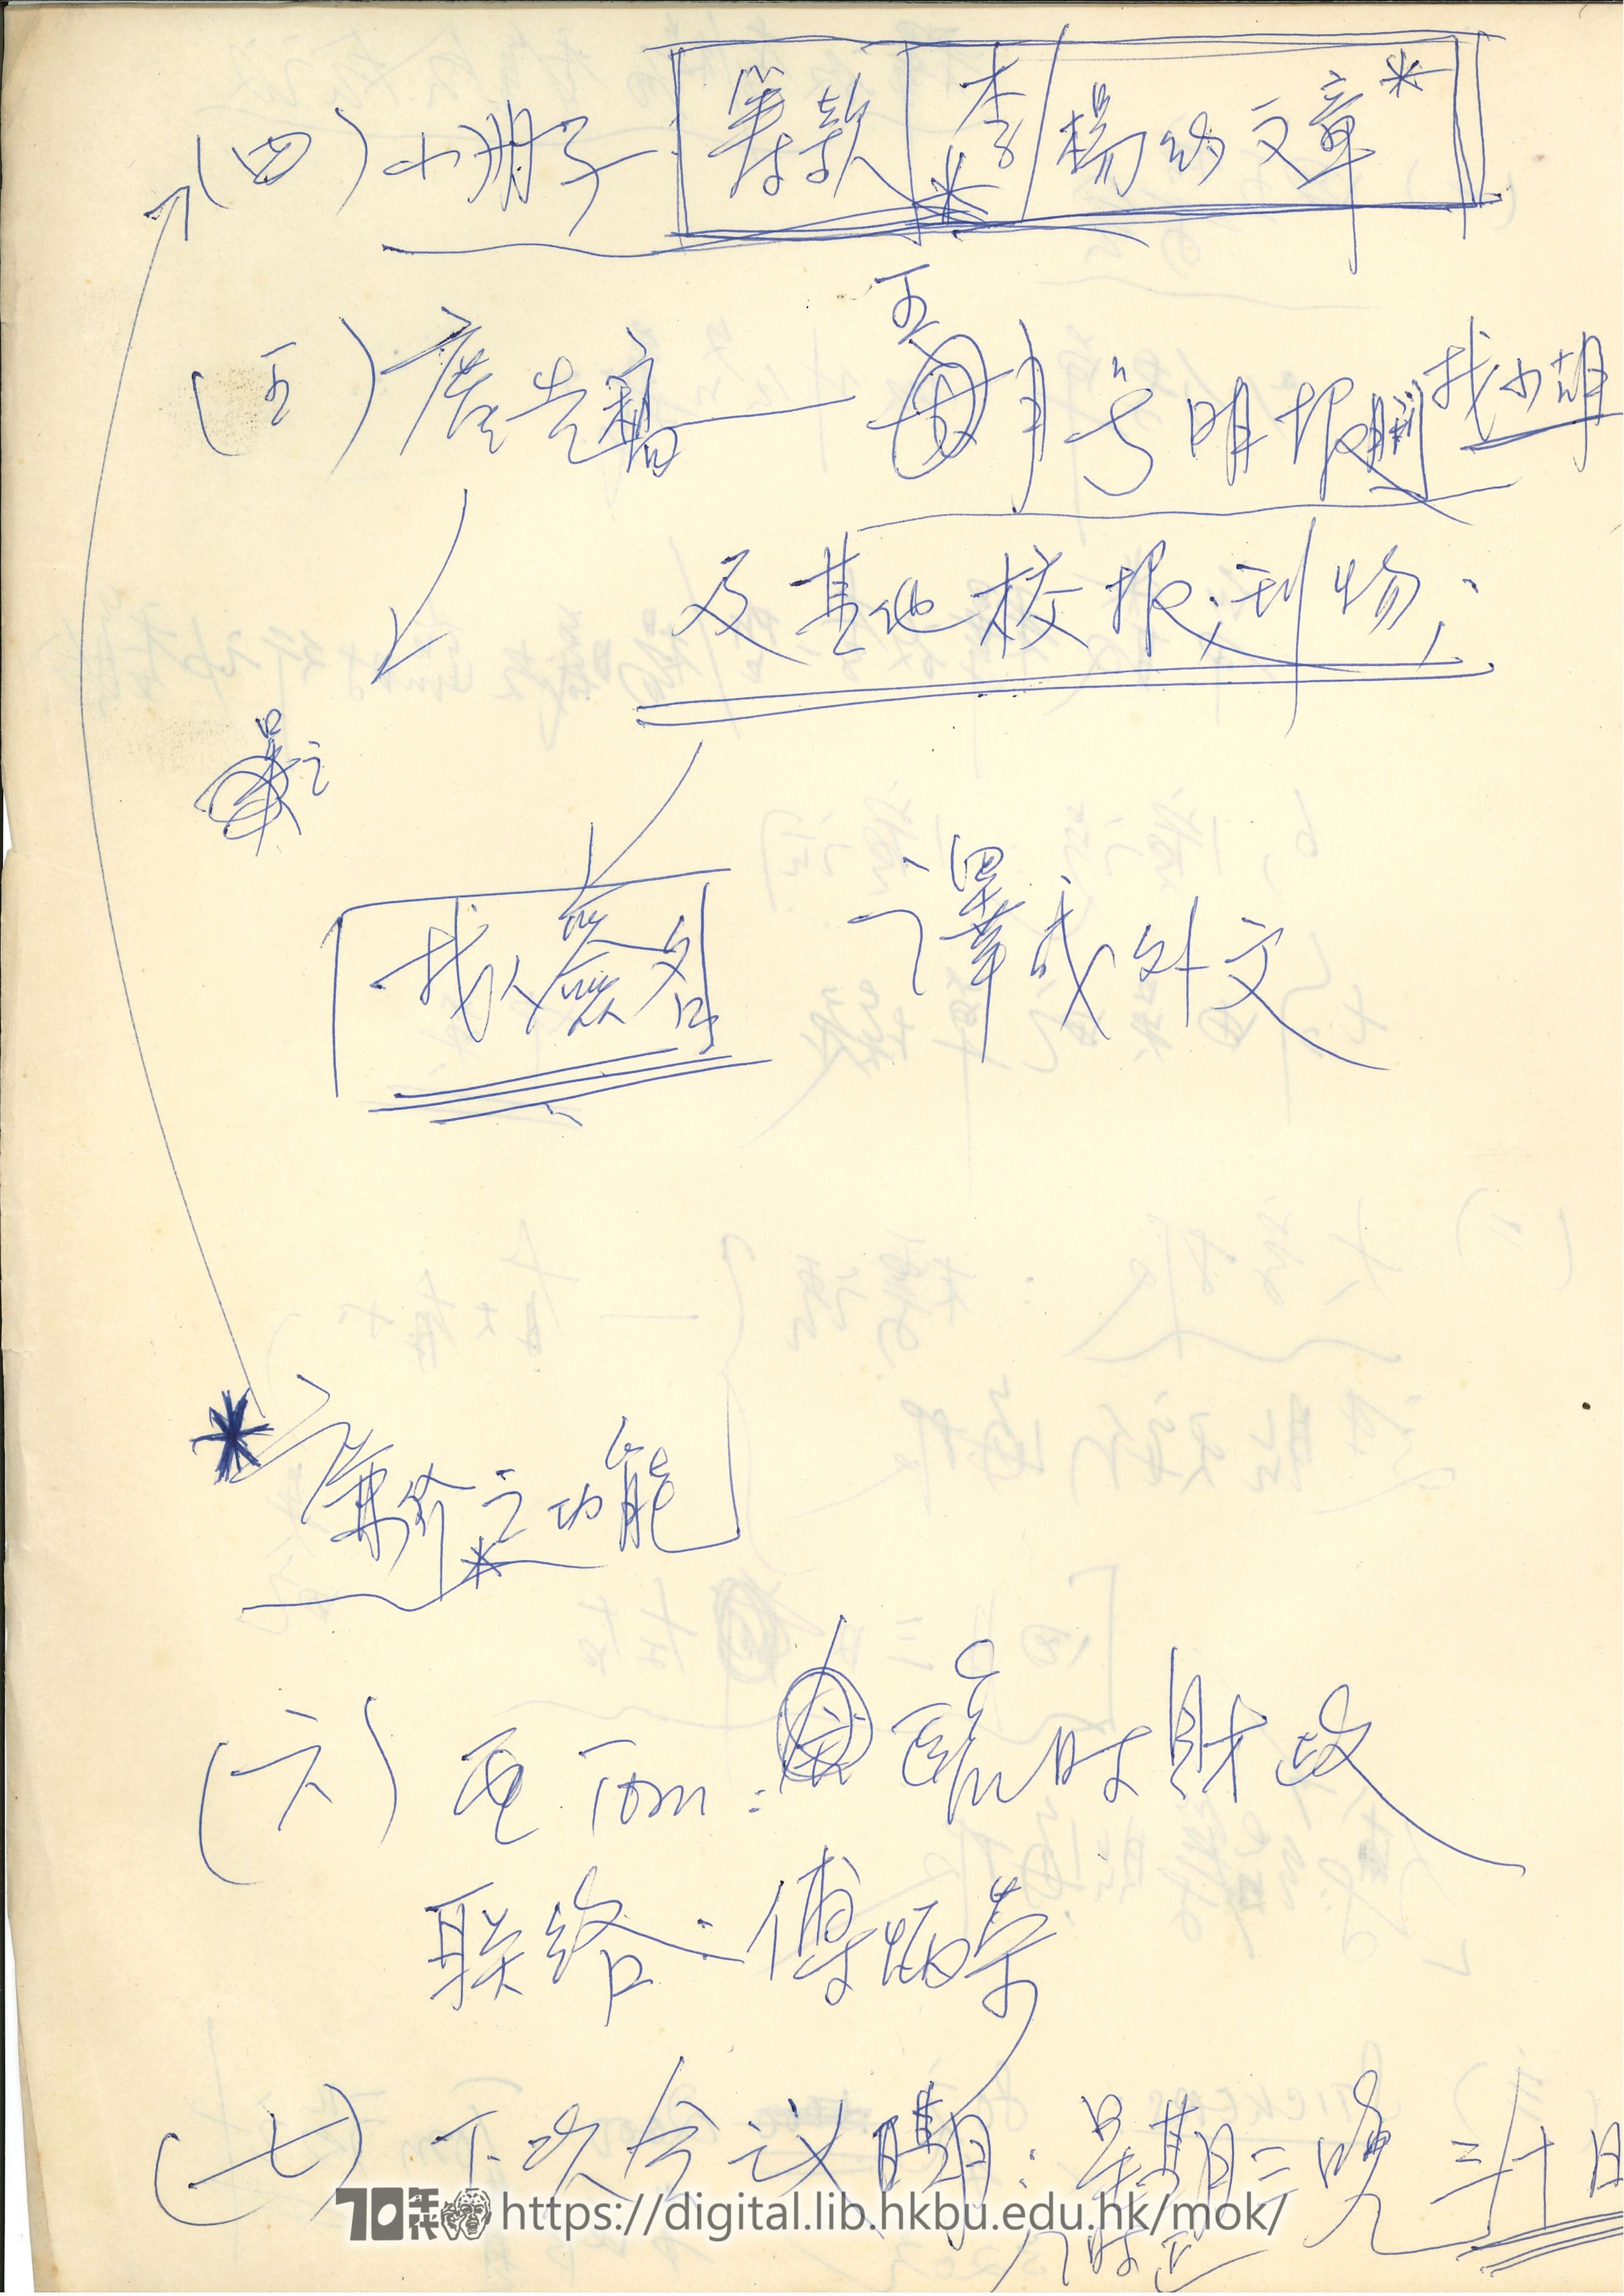 (四)小册子 筹款 李/楊的文章*
(五)廣告稿——五月号明报 找小胡
及其他校报,刊物;
找人簽名 譯成外文
*廉价之功能
(六) 臨时財政
联络:傅炳荣
(七)下次会议日期:星期三晚 三十日
八时正
70年代 https://digital.lib.hkbu.edu.hk/mok/